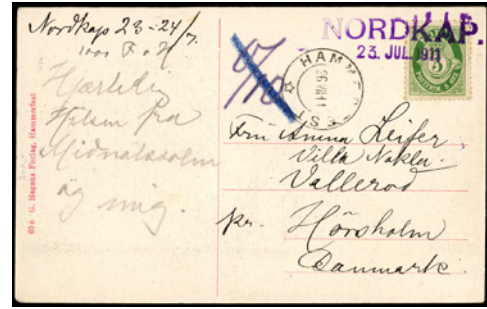 Nordkap 23-24/7.
1000 F. o. H
Hjertelig
Hilsen fra
Midnatssolen
og mig.
60 e G. Hagens Forlag, Hammerfest
NORDKAP.
23. JUL. 1911
HAMMERFEST
26 VII 11
Fru Anna Leifer
Villa
Vallerød
pr. Hörsholm
Danmark.